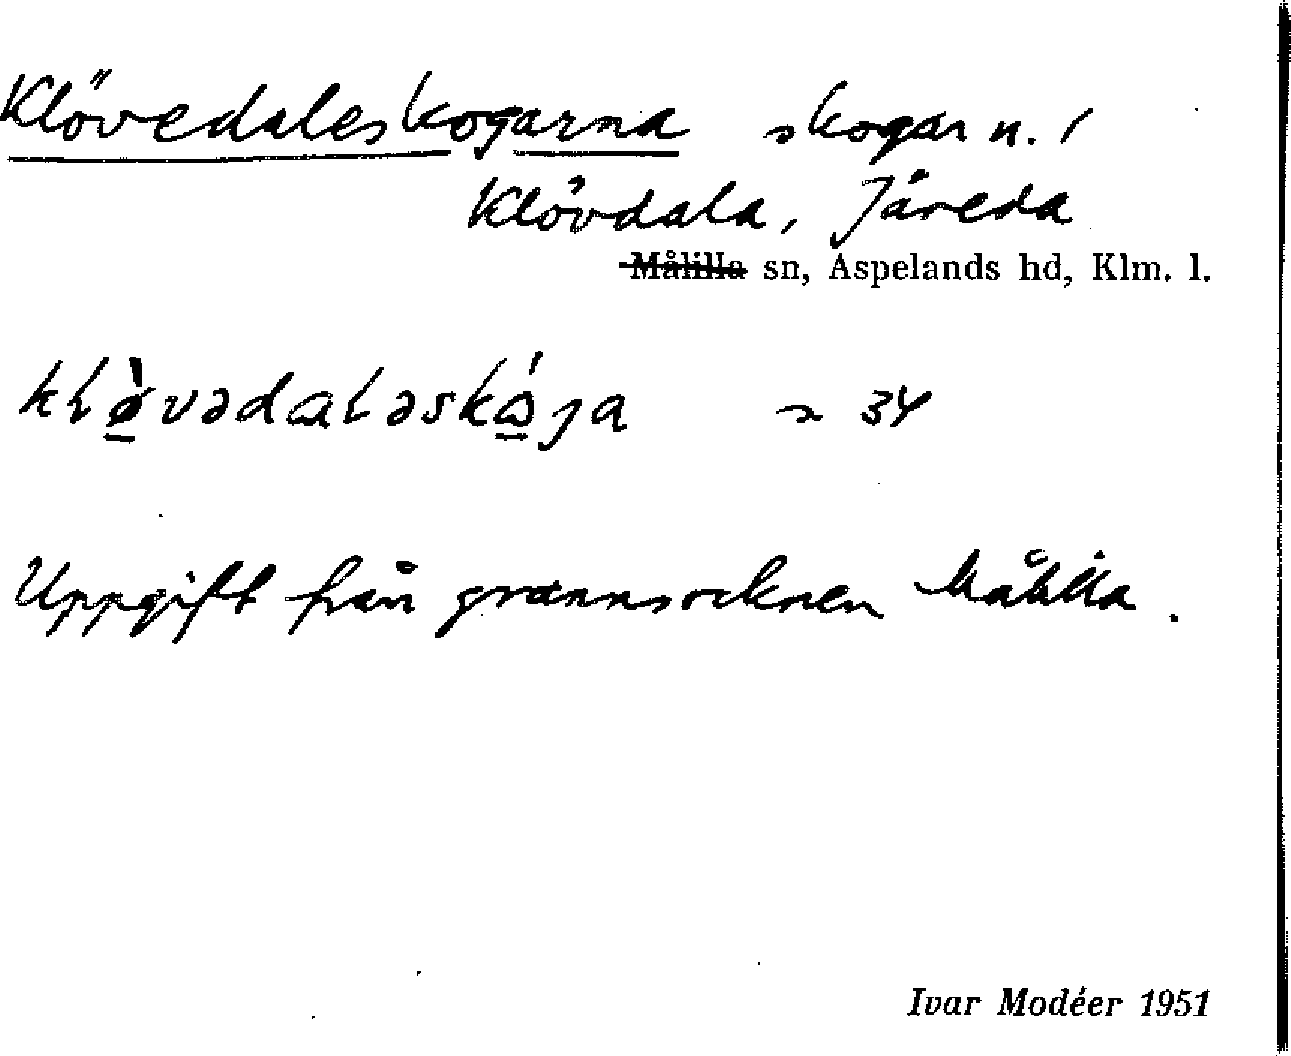 Klövedaleskogarna skogar n. /
Klövdala, Järeda
Målilla sn, Aspelands hd, Klm. l.
klø̀vədaləskɷ́ja ∾ 34
Uppgift från grannsocknen Målilla.
Ivar Modéer 1951